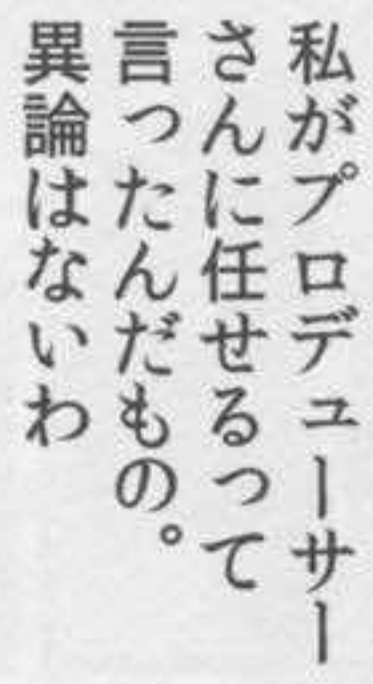 私がプロデューサー
さんに任せるって
言ったんだもの。
異論はないわ